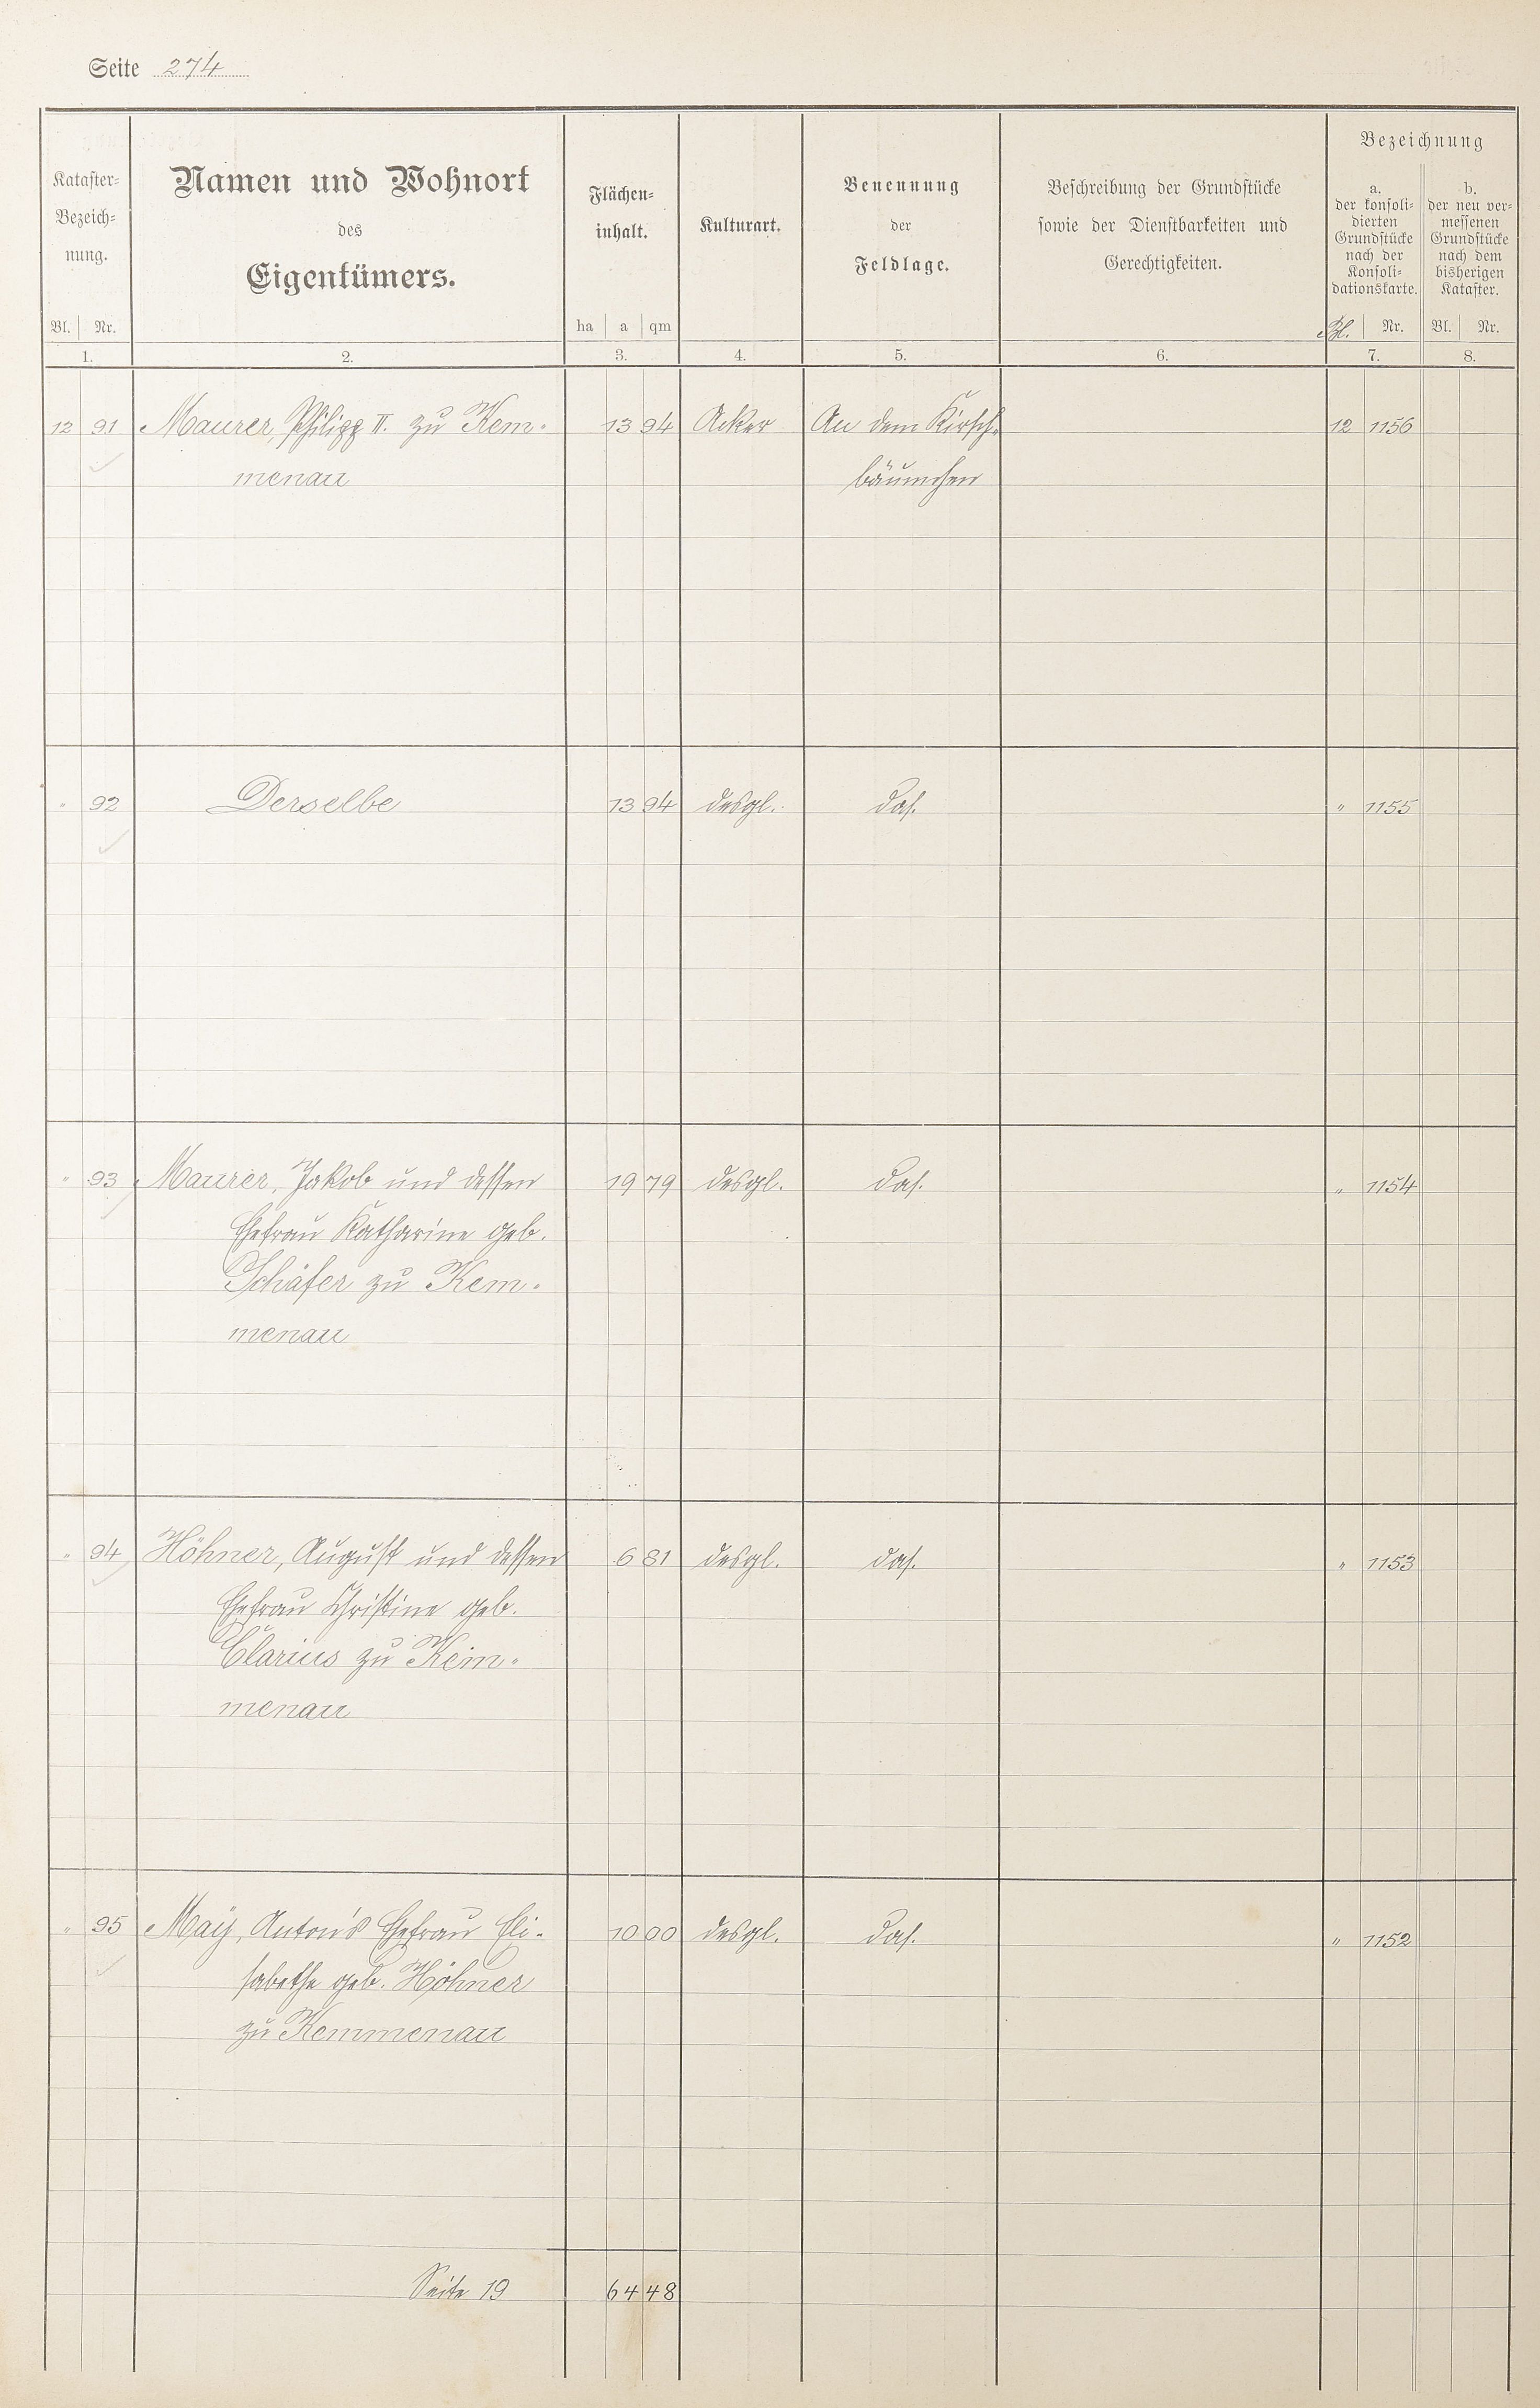 Seite 274
Kataster-
Bezeich-
nung.
Bl. Nr.
1.
Namen und Wohnort
des
Eigentümers.
2.
Flächen-
inhalt.
ha a qm
3.
Kulturart.
4.
Benennung
der
Feldlage.
5.
Beschreibung der Grundstücke
sowie der Dienstbarkeiten und
Gerechtigkeiten.
6.
Bezeichnung
a.
der konsoli-
dierten
Grundstücke
nach der
Konsoli-
dationskarte.
Bl. Nr.
7.
b.
der neu ver-
messenen
Grundstücke
nach dem
bisherigen
Kataster.
Bl. Nr.
8.
12 91 Maurer, Philipp II. zu Kem- 13 94 Acker An dem Kirsch- 12 1156
menau bäumchen
" 92 Derselbe 13 94 desgl. das. " 1155
" 93 Maurer, Jakob und dessen 19 79 desgl. das. " 1154
Ehefrau Katharine geb.
Schäfer zu Kem-
menau
" 94 Höhner, August und dessen 6 81 desgl. das. " 1153
Ehefrau Christine geb.
Clarius zu Kem-
menau
" 95 Maÿ, Anton's Ehefrau Eli- 10 00 desgl. das. " 1152
sabethe geb. Höhner
zu Kemmenau
Seite 19 64 48